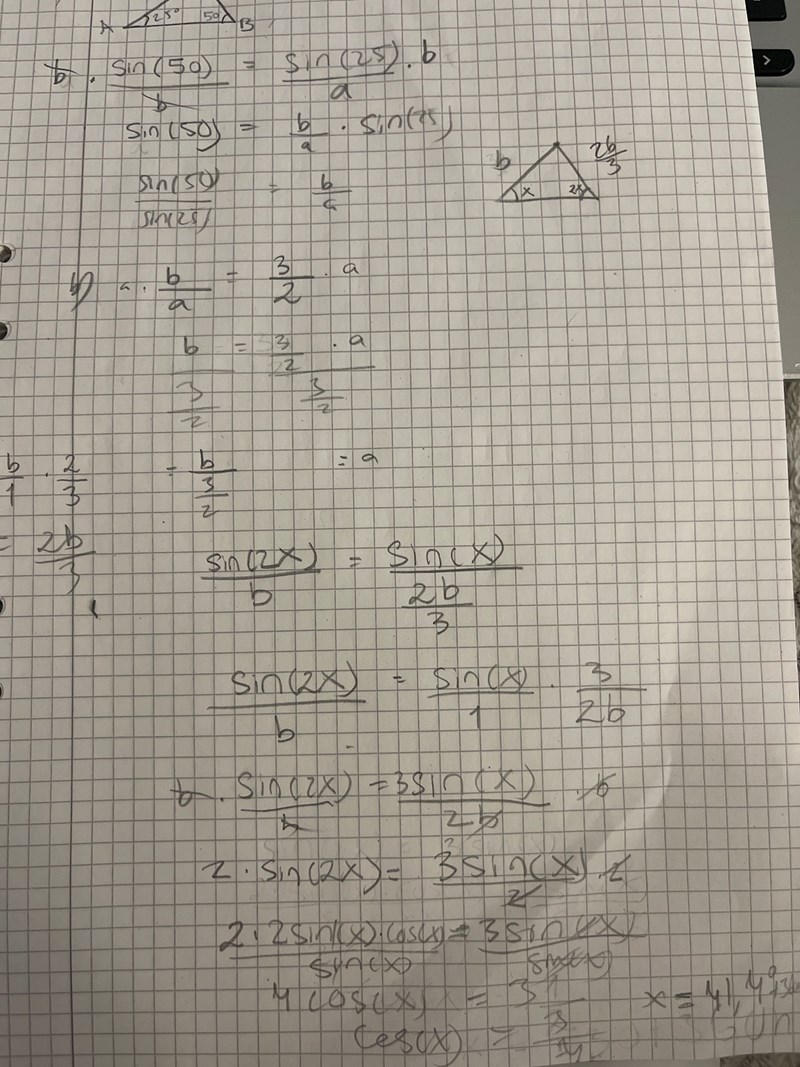 A 25° 50 B
b · sin(50)/b = sin(25)/a · b
sin(50) = b/a · sin(25)
sin(50)/sin(25) = b/a
b 2b/3
x 2x
b) a · b/a = 3/2 · a
b/(3/2) = (3/2 · a)/(3/2)
b/1 · 2/3 = b/(3/2) = a
= 2b/3
sin(2x)/b = sin(x)/(2b/3)
sin(2x)/b = sin(x)/1 · 3/2b
b · sin(2x)/b = 3sin(x)/2b · b
2 · sin(2x) = 3sin(x)/2 · 2
2·2sin(x)·cos(x)/sin(x) = 3sin(x)/sin(x)
4cos(x) = 3 x = 41,4°
cos(x) = 3/4